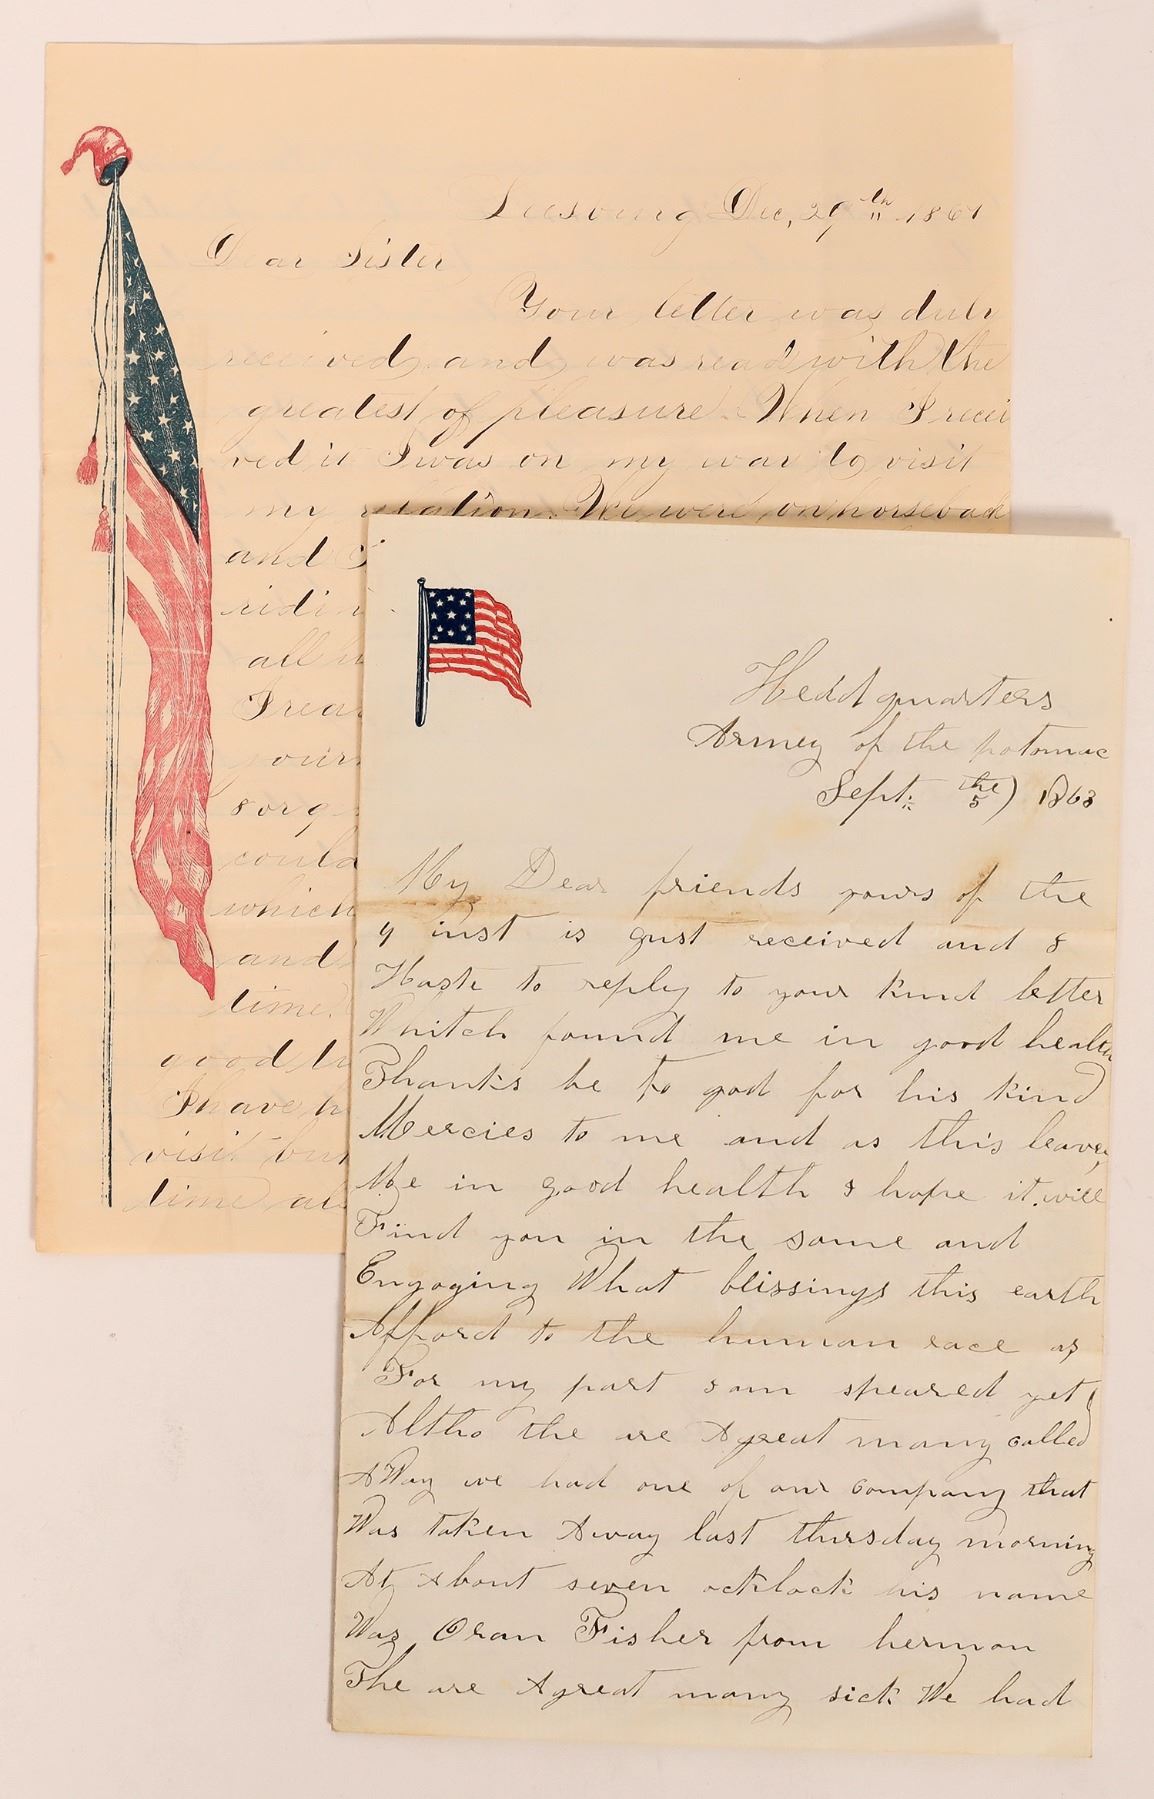 Leesburg Dec, 29th 1861
Dear Sister
Your letter was duly
received and was read with the
greatest of pleasure. When I recei
ved it I was on my way to visit
my relation. We were on horseback
and I
ridi
all
I rea
your
sorg
could
which
and
time.
good
I have
visit but
time
Headquarters
Armey of the potomac
Sept. the 5) 1863
My Dear friends yours of the
inst is gust received and I
Haste to reply to your kind letter
Whitch found me in good health
Thanks be to god for his kind
Mercies to me and as this leaves
Me in good health I hope it will
Find you in the same and
Engoging What blissings this earth
Afford to the human race as
For my part I am speared yet
Altho the are A great many called
A Way we had one of our company that
Was taken Away last thursday morning
At About seven ocklock his name
Was Oran Fisher from hermon
The are A great many sick We had